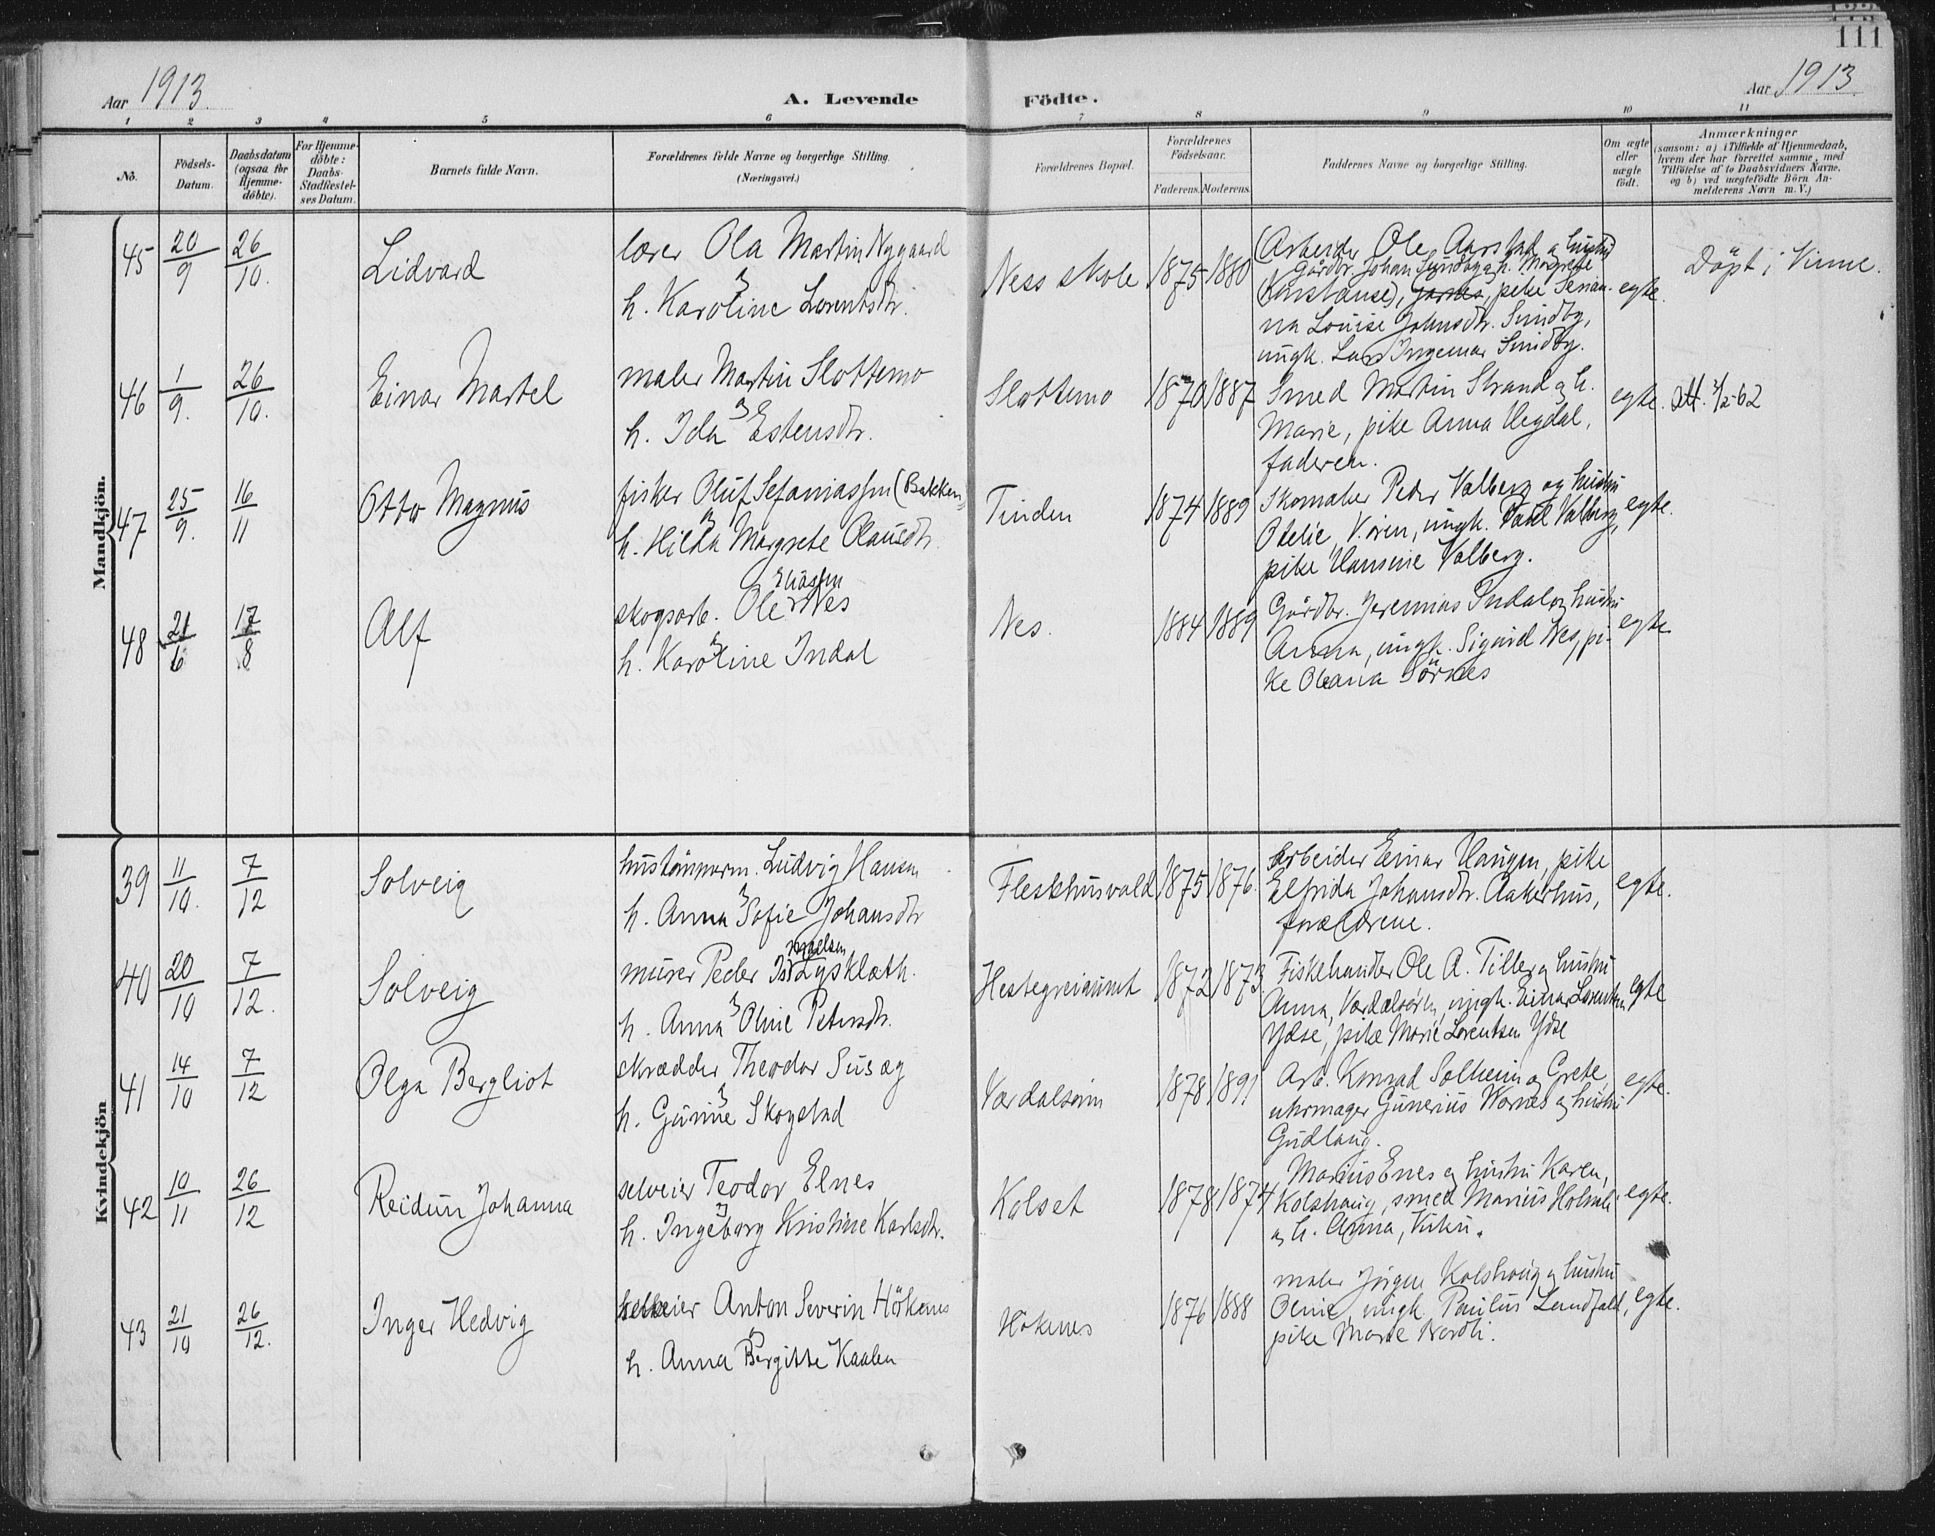 111
Aar 1913.
A. Levende
Födte.
Aar 1913.
1 2 3 4 5 6 7 8 9 10 11
No.
Födsels-
Datum.
Daabsdatum
(ogsaa for
Hjemme-
döbte).
For Hjemme-
döbte:
Daabs-
Stadfæstel-
ses Datum.
Barnets fulde Navn.
Forældrenes fulde Navne og borgerlige Stilling.
(Næringsvei.)
Forældrenes Bopæl.
Forældrenes
Födselsaar.
Faderens. Moderens.
Faddernes Navne og borgerlige Stilling.
Om ægte
eller
uægte
födt.
Anmærkninger
(saasom: a) i Tilfælde af Hjemmedaab,
hvem der har forrettet samme, med
Tilföielse af to Daabsvidners Navne,
og b) ved uægtefödte Börn An-
melderens Navn m. V.)
Mandkjön.
45 20/9 26/10. Lidvard
lærer Ola Martin Nygaard
h. Karoline Lorentsdtr.
Ness skole 1875 1880
(Arbeider Ole Aarstad og hustru
Gårdbr. Johan Sundby og h. Margrete
(Konstanse), pike Jenian-
na Louise Johnsdtr. Sundby,
ungk. Lars Ingemar Sundby.
egte.
Döpt i Vinne.
46 1/9. 26/10. Einar Martel
maler Martin Slottemo
h. Ida Estensdtr.
Slottemo 1870 1887
Smed Martin Strand og h.
Marie, pike Anna Uegdal,
faderen.
egte.
47 25/9. 16/11 Otto Magnus
fisker Oluf Sefaniassen (Bakken)
h. Hilda Margrete Olausdtr.
Tinden 1874 1889
Skomaker Peder Valberg og hustru
Otelie, V.ören, ungk. Paul Valberg,
pike Hansine Valberg.
egte.
48 21/6 17/8 Alf
skogsarb. Ole Eliassen Nes
h. Karoline Indal
Nes. 1884 1889
Gårdbr. Jeremias Indal og hustru
Anna, ungk. Sigurd Nes, pi-
ke Oleana Sörnes
egte
Kvindekjön
39 11/10. 7/12 Solveig
hustömmerm. Ludvig Hansen
h. Anna Sofie Johansdtr
Fleskhusvald 1875 1876.
Arbeider Einar Haugen, pike
Elfrida Johansdtr. Aakerhus,
forældrene.
egte.
40 20/10 7/12. Solveig
murer Peder Lyskløth.
h. Anna Oline Petersdtr.
Hestegreiaunet 1872 1873.
Fiskehandler Ole A. Tiller og hustru
Anna, Værdalsören, ungk. Einar Lorentsen
Ydse, pike Marie Lorentsen Ydse
egte
41 14/10 7/12 Olga Bergliot
skrædder Theodor Susæg
h. Gunne Skogstad
Værdalsören 1878 1891
Arb. Konrad Solheim og Grete,
uhrmager Gunerius Wornes og hustru
Gudlaug.
egte.
42 10/11 26/12 Reidun Johanna
selveier Teodor Elnes
h. Ingeborg Kristine Karlsdtr.
Kolset 1878 1874
Marius Enes og hustru Karen,
Kolshaug, smed Marius Holmli
og h. Anna, Vuku.
egte.
43 21/10 26/12. Inger Hedvig
selveier Anton Severin Hökenes
h. Anna Bergitte Kaalen
Hökenes 1876 1888
maler Jörgen Kolshaug og hustru
Oline, ungk. Paulus Lundfald,
pike Marie Nordli.
egte.